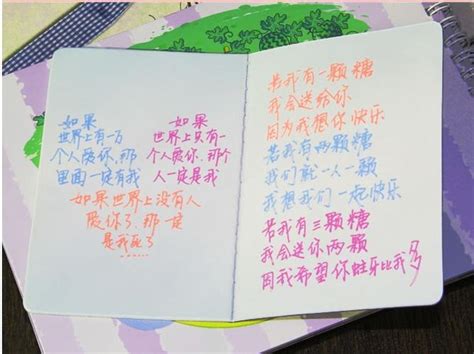 如果
世界上有一万
个人爱你,那
里面一定有我
如果
世界上只有一
个人爱你,那个
人一定是我
如果世界上没有人
爱你了,那一定
是我死了
若我有一颗糖
我会送给你
因为我想你快乐
若我有两颗糖
我们就一人一颗
我想我们一起快乐
若我有三颗糖
我会送你两颗
因我希望你蛀牙比我多